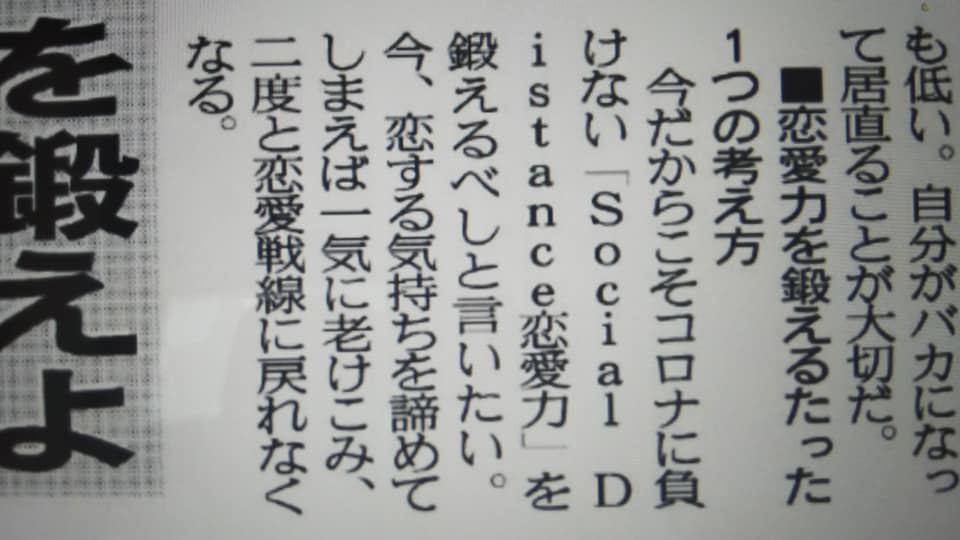 も低い。自分がバカになっ
て居直ることが大切だ。
■恋愛力を鍛えるたった
1つの考え方
今だからこそコロナに負
けない「Social D
istance恋愛力」を
鍛えるべしと言いたい。
今、恋する気持ちを諦めて
しまえば一気に老けこみ、
二度と恋愛戦線に戻れなく
なる。
を鍛えよ